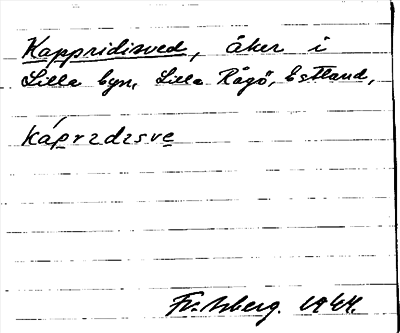 Kappridisved, åker i
Lilla byn, Lilla Rågö, Estland,
káprɪdɪsve
1944.